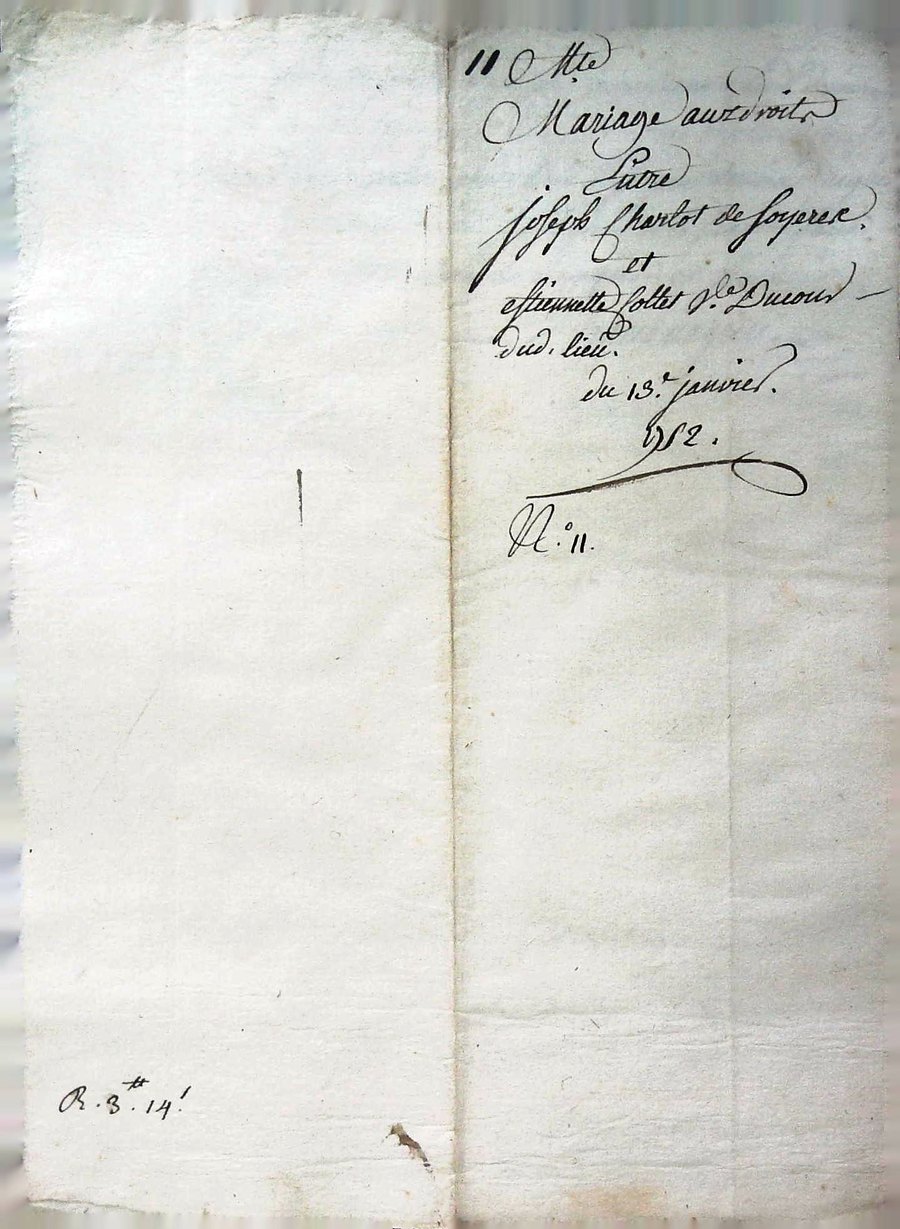 11 Mte
Mariage aux droits
Entre
joseph Charlot de Soyerex.
et
estiennette Collet Ve Ducour
dud. lieu.
du 13e janvier.
1752.
N.° 11.
R. 3.tt 14.s